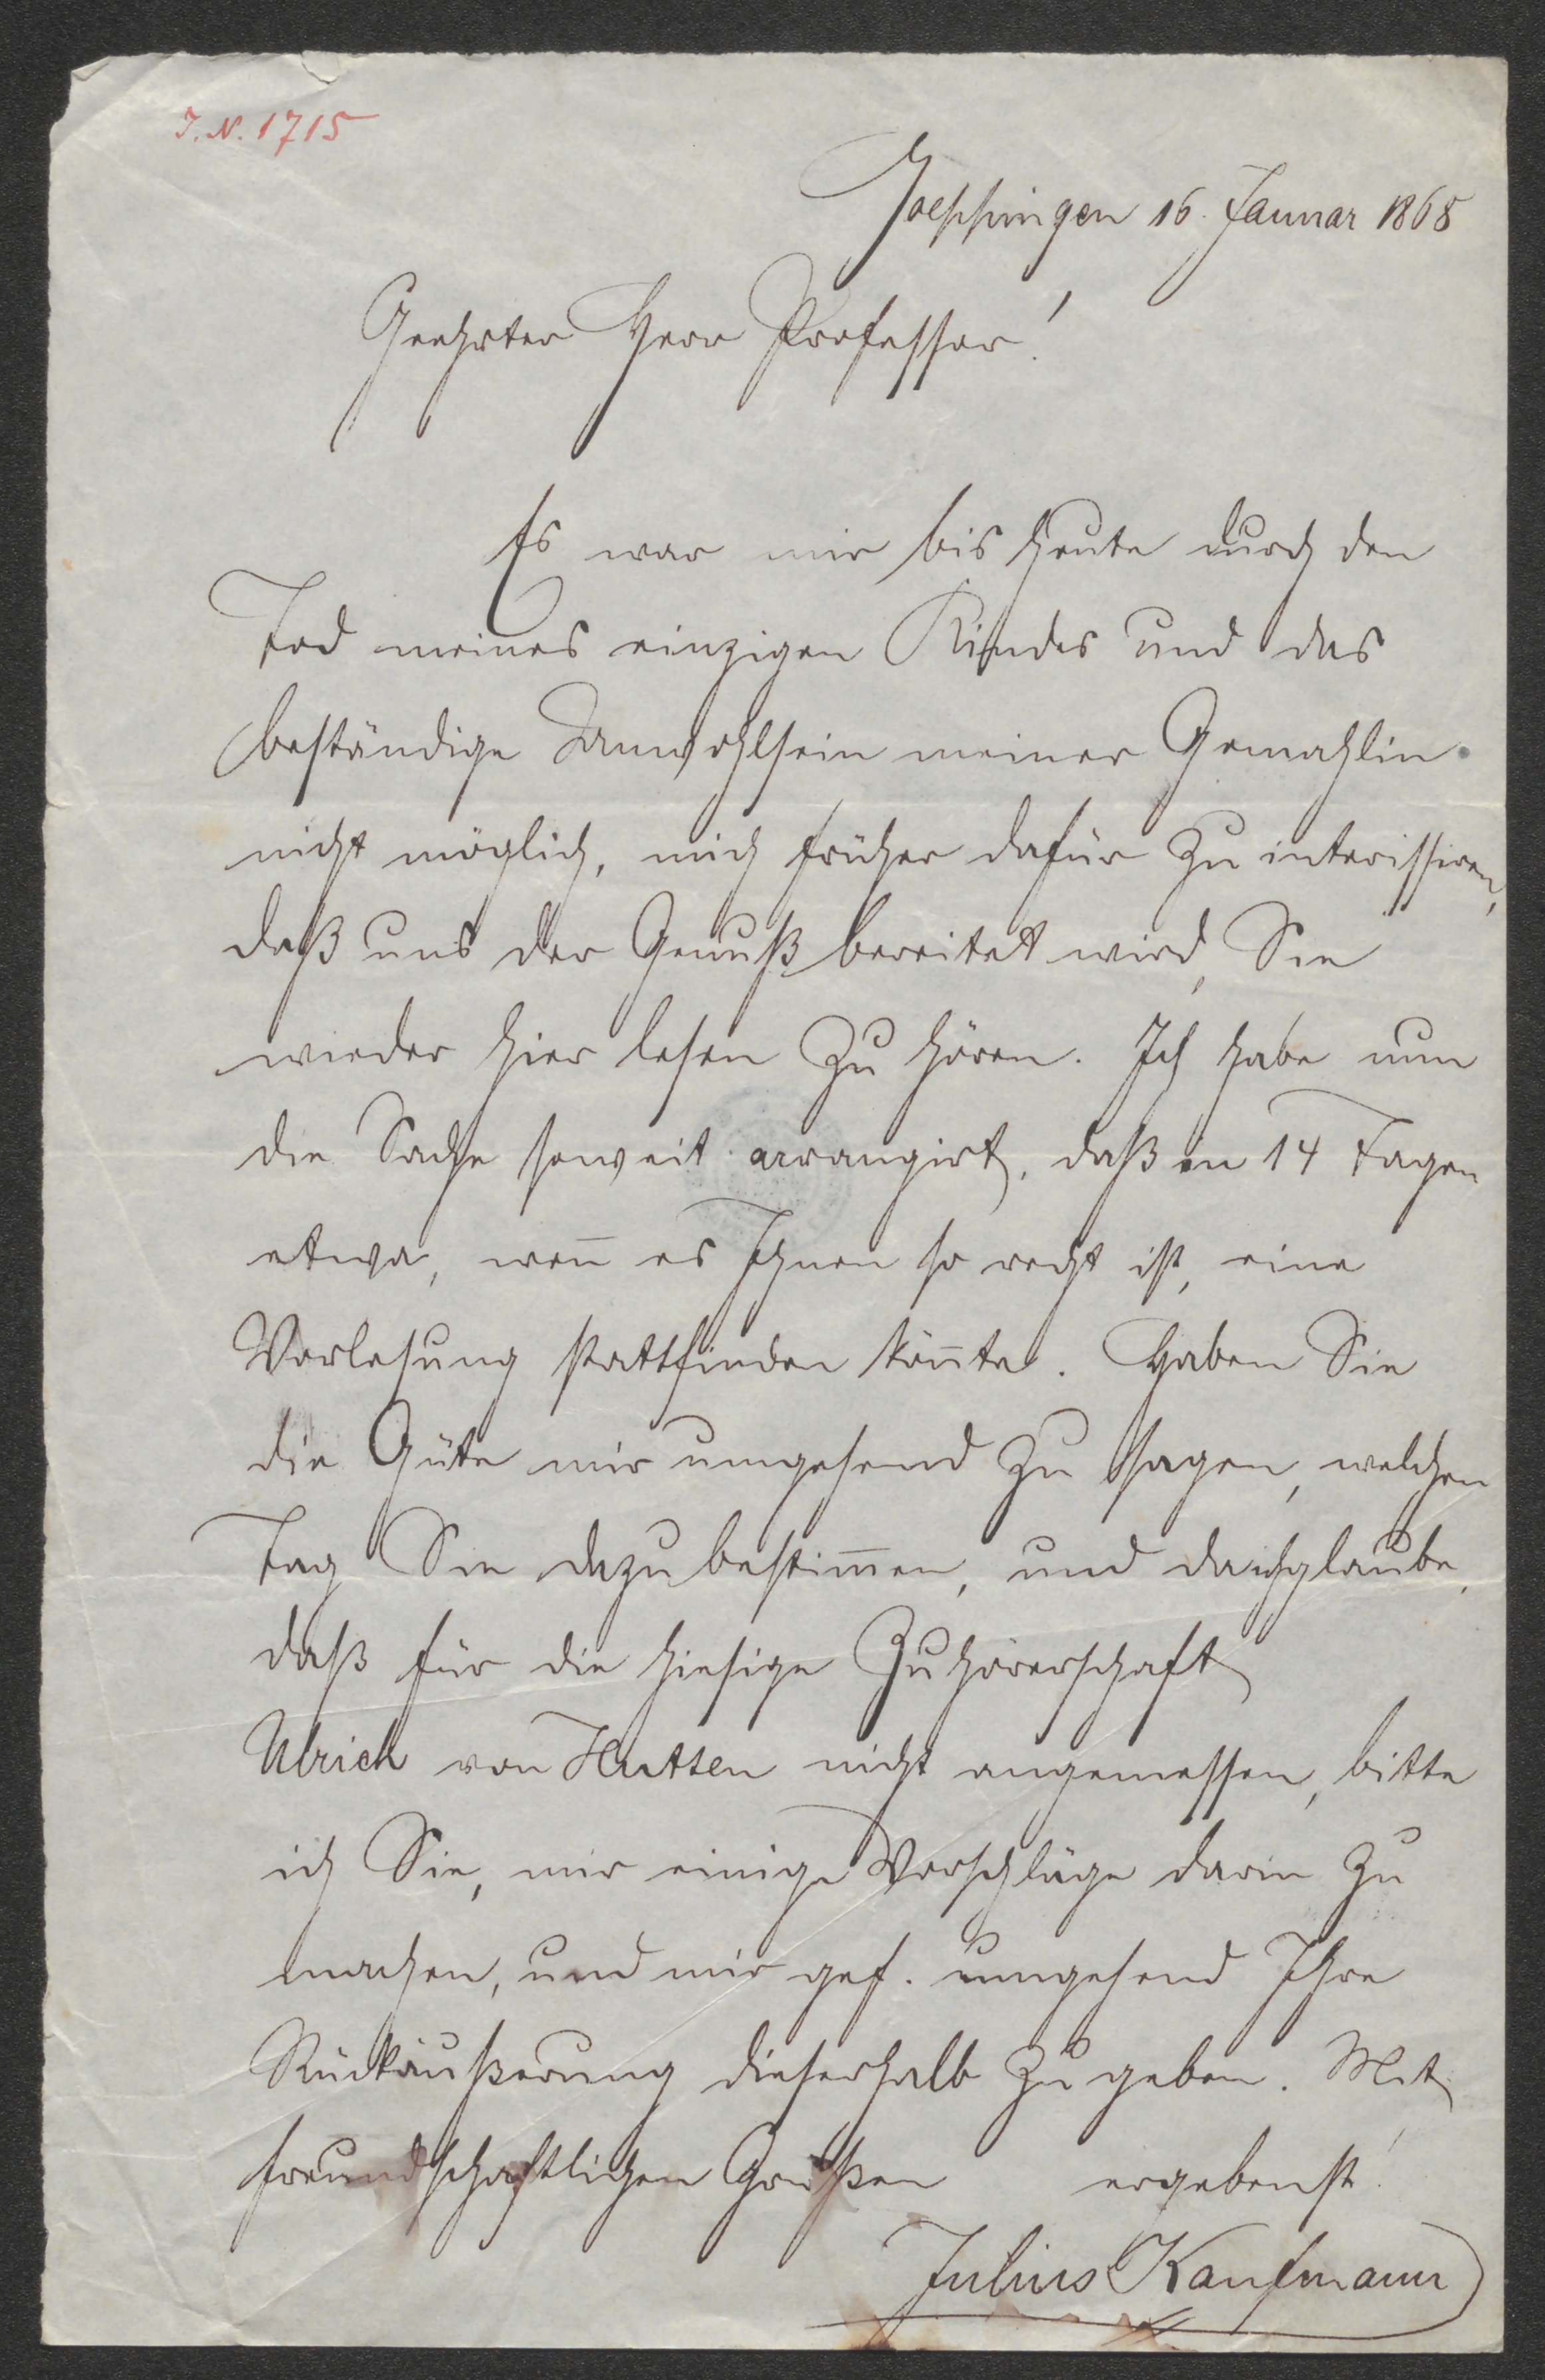 J. N. 1715
Goeppingen 16. Januar 1868
Geehrter Herr Professor!
Es war mir bis heute durch den
Tod meines einzigen Kindes und das
beständige Unwohlsein meiner Gemahlin
nicht möglich, mich früher dafür zu interissiren,
daß uns der Genuß bereitet wird, Sie
wieder hier lesen zu hören. Ich habe nun
die Sache soweit arrangirt, daß in 14 Tagen
etwa, wen̄ es Ihnen so recht ist, eine
Vorlesung stattfinden kön̄te. Haben Sie
die Güte mir umgehend zu sagen, welchen
Tag Sie dazu bestim̄en, und da ich glaube,
daß für die hiesige Zuhörerschaft
Ulrich von Hutten nicht angemessen, bitte
ich Sie, mir einige Vorschläge darin zu
machen, und mir gef. umgehend Ihre
Rückäußerung dieserhalb zu geben. Mit
freundschaftlichen Grüßen ergebenst!
Julius Kaufmann